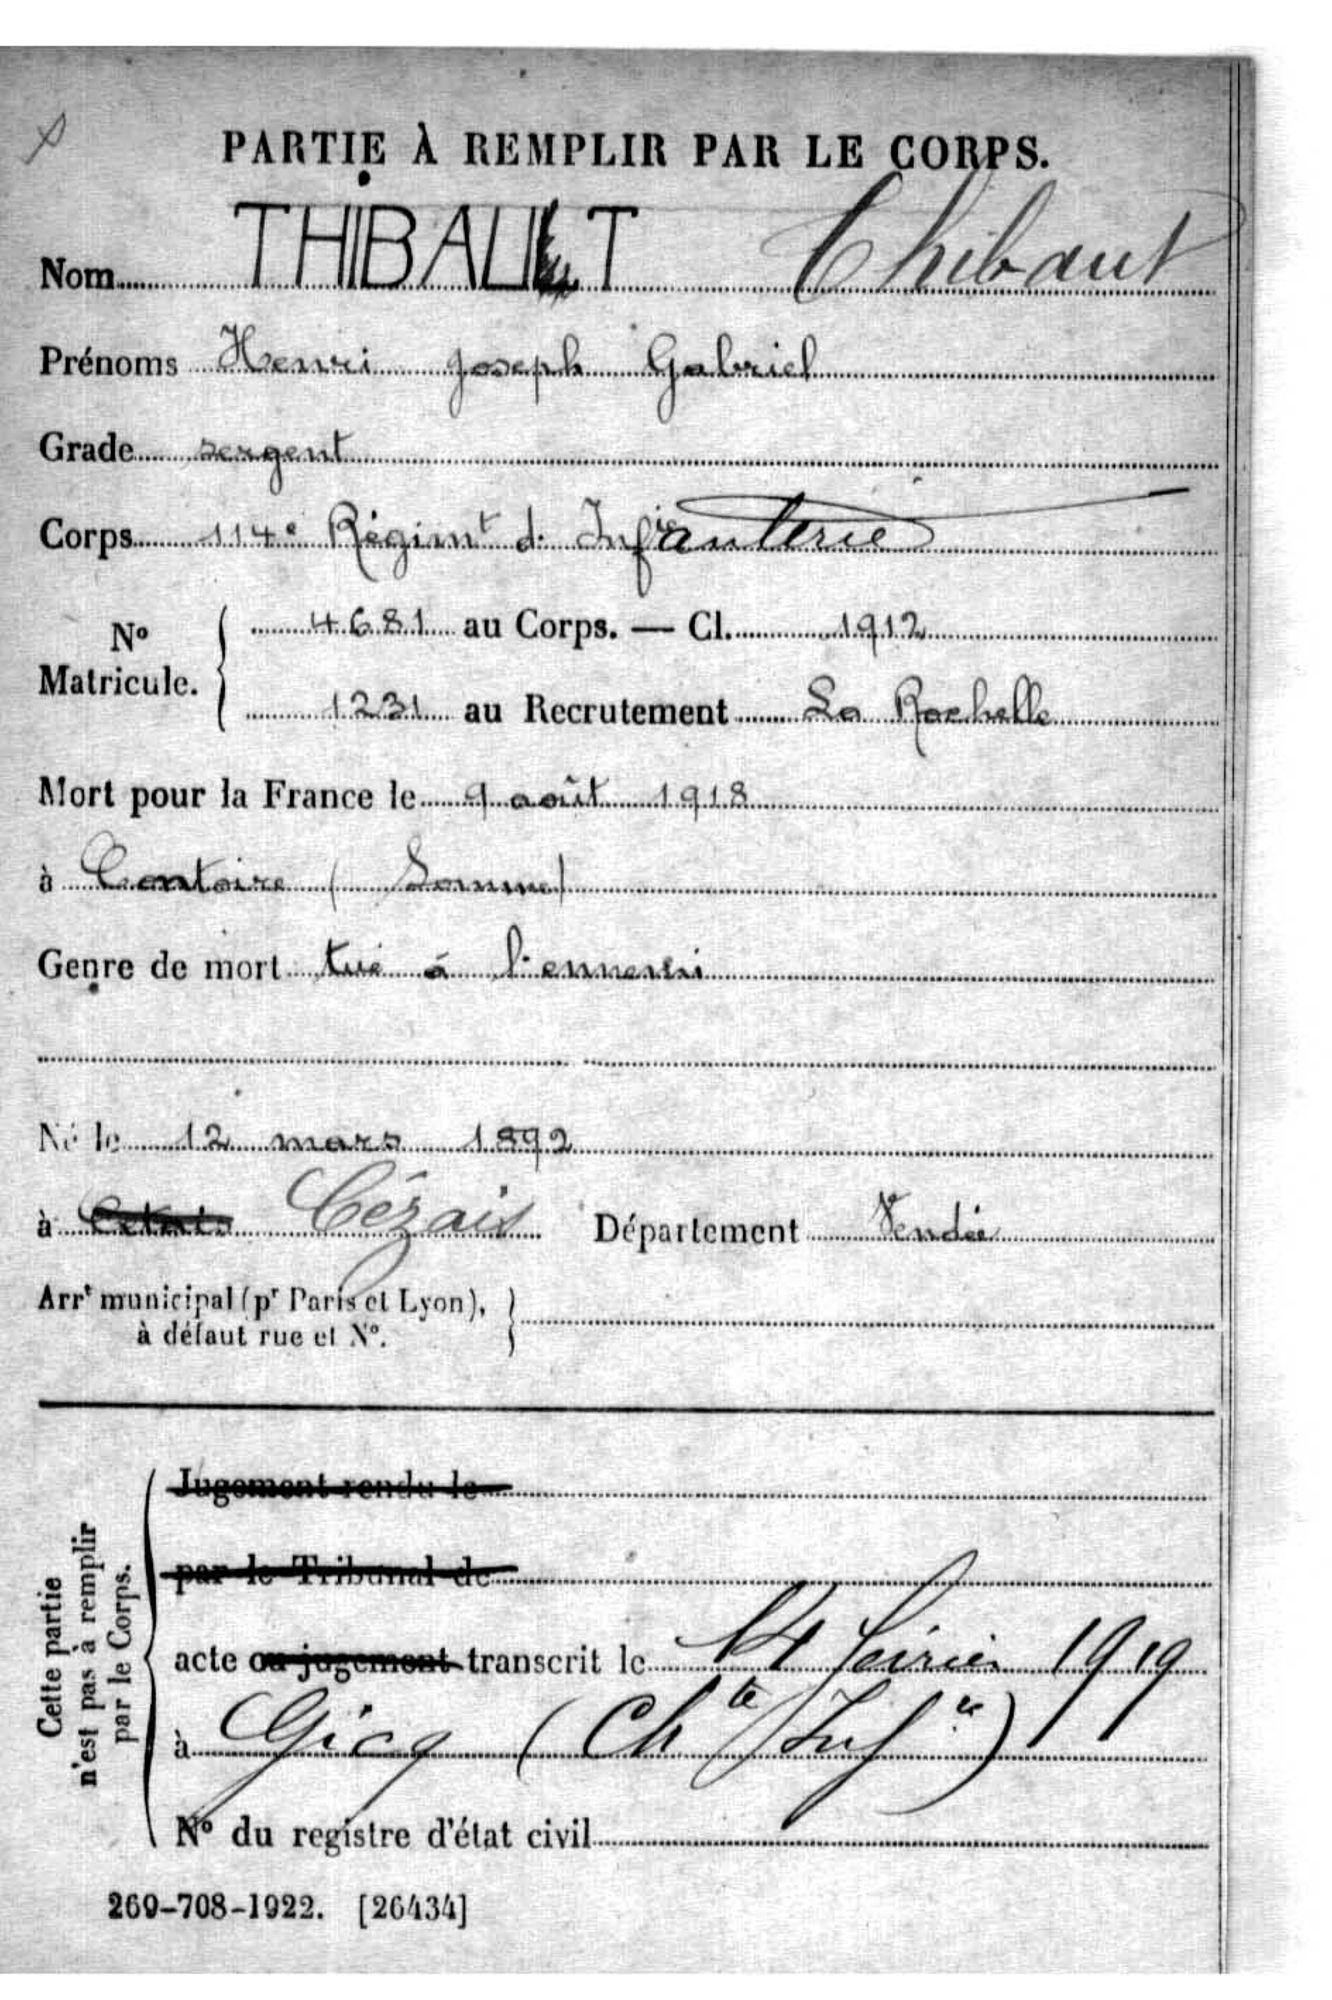 PARTIE À REMPLIR PAR LE CORPS.
Nom THIBAUT Thibaut
Prénoms Henri Joseph Gabriel
Grade sergent
Corps 114e Régimt d. Infanterie
No Matricule. 4681 au Corps. — Cl. 1912
1231 au Recrutement La Rochelle
Mort pour la France le 9 août 1918
à Contoire (Somme)
Genre de mort tué à l'ennemi
Né le 12 mars 1892
à Cézais Département Vendée
Arrt municipal (pr Paris et Lyon),
à défaut rue et No.
Cette partie
n'est pas à remplir
par le Corps.
Jugement rendu le
par le Tribunal de
acte ou jugement transcrit le 14 février 1919
à Gicq (Chte Infre)
No du registre d'état civil
269-708-1922. [26434]